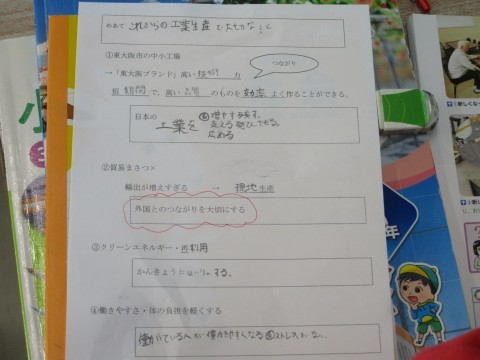 めあて これからの工業生産で大切なこと
①東大阪市の中小工場
つながり
→「東大阪ブランド」高い技術力
短期間で、高い品質のものを効率よく作ることができる。
日本の
工業を
増やす
支える
広める
②貿易まさつ×
輸出が増えすぎる → 現地生産
外国とのつながりを大切にする
③クリーンエネルギー・再利用
かんきょうに
する。
④働きやすさ・体の負担を軽くする
働いている人が働きやすくなる
ストレスがない